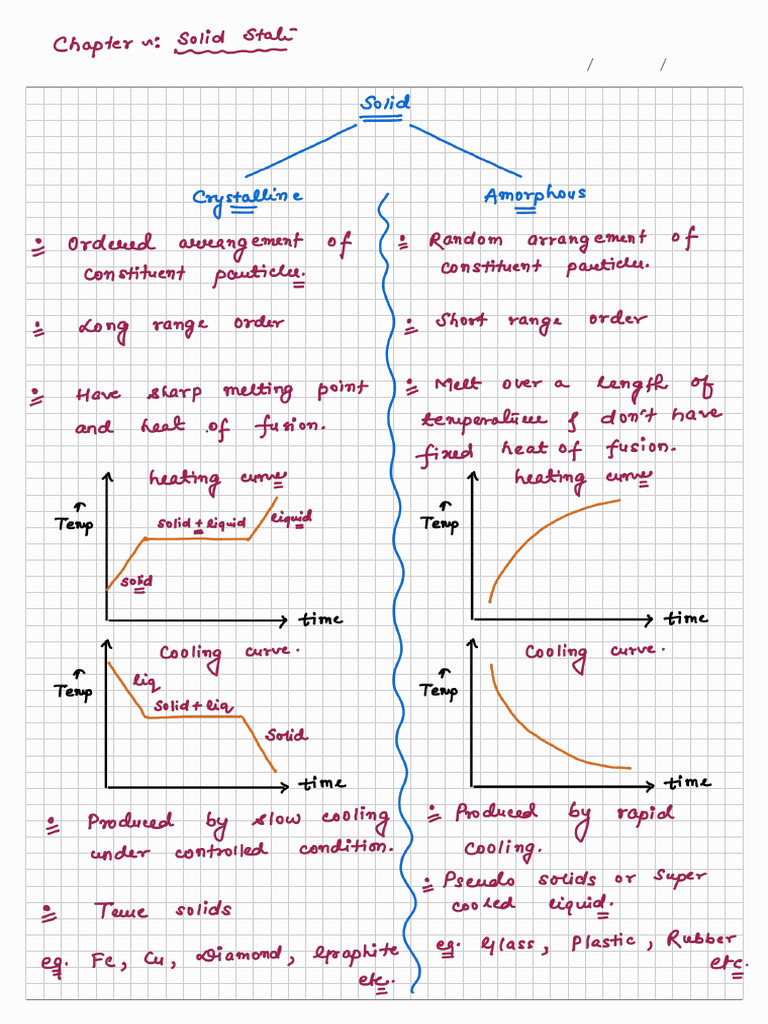 Chapter n: Solid State
/ /
Solid
Crystalline
Ordered arrangement of
constituent particles.
Long range order
Have sharp melting point
and heat of fusion.
heating curve
↑
Temp
solid + liquid
liquid
solid
time
Cooling curve.
↑
Temp
liq
Solid + liq
Solid
time
Produced by slow cooling
under controlled condition.
True solids
eg. Fe, Cu, Diamond, Graphite
etc.
Amorphous
Random arrangement of
constituent particles.
Short range order
Melt over a length of
temperature & don't have
fixed heat of fusion.
heating curve
↑
Temp
time
Cooling curve.
↑
Temp
time
Produced by rapid
cooling.
Pseudo solids or Super
cooled liquid.
eg. Glass, Plastic, Rubber
etc.